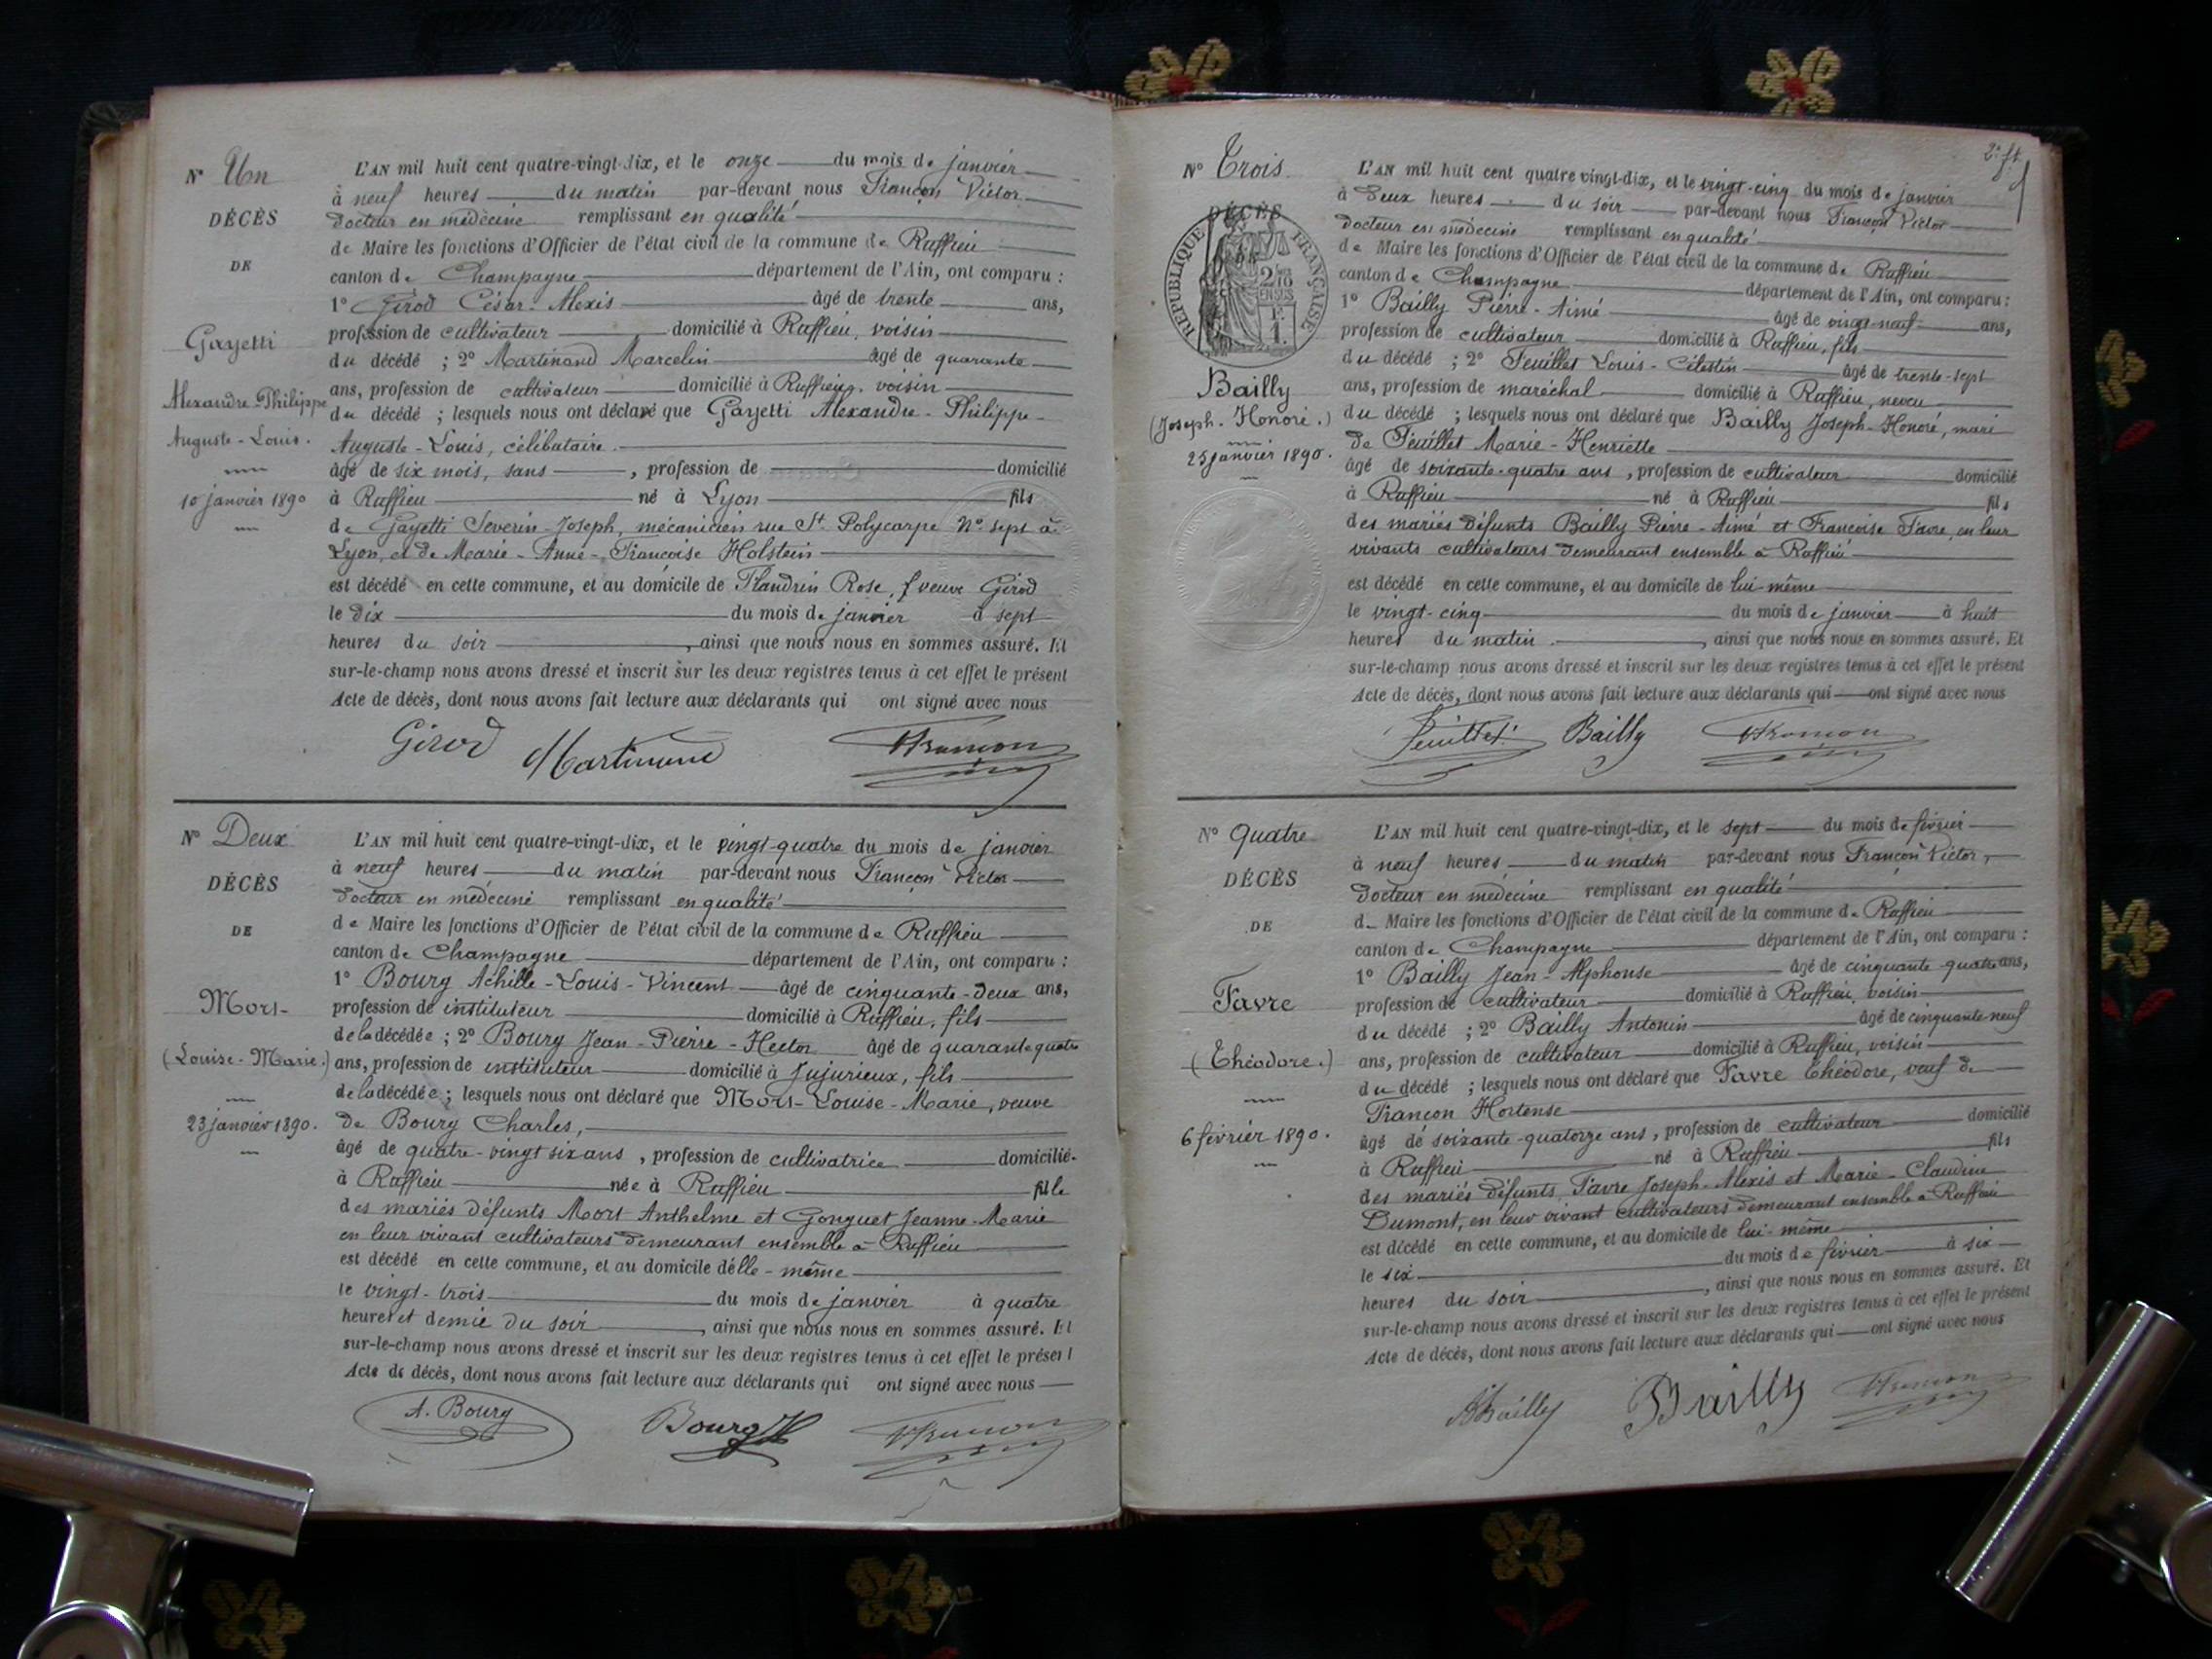 N° Un
DÉCÈS
DE
Gayetti
Alexandre-Philippe
Auguste-Louis.
10 janvier 1890
L'AN mil huit cent quatre-vingt-dix, et le onze du mois de janvier
à neuf heures du matin par-devant nous Françon Victor
docteur en médecine remplissant en qualité
de Maire les fonctions d'Officier de l'état civil de la commune de Ruffieu
canton de Champagne département de l'Ain, ont comparu :
1° Girod César-Alexis âgé de trente ans,
profession de cultivateur domicilié à Ruffieu, voisin
du décédé ; 2° Martinand Marcelin âgé de quarante
ans, profession de cultivateur domicilié à Ruffieu, voisin
du décédé ; lesquels nous ont déclaré que Gayetti Alexandre-Philippe-
Auguste-Louis, célibataire.
âgé de six mois, sans , profession de domicilié
à Ruffieu né à Lyon fils
de Gayetti Séverin-Joseph, mécanicien rue St Polycarpe N° sept à
Lyon, et de Marie-Anne-Françoise Holstein
est décédé en cette commune, et au domicile de Flandrin Rose, veuve Girod
le dix du mois de janvier à sept
heures du soir , ainsi que nous nous en sommes assuré. Et
sur-le-champ nous avons dressé et inscrit sur les deux registres tenus à cet effet le présent
Acte de décès, dont nous avons fait lecture aux déclarants qui ont signé avec nous
Girod Martinand VFrançon
N° Deux
DÉCÈS
DE
Mort
(Louise-Marie.)
23 janvier 1890.
L'AN mil huit cent quatre-vingt-dix, et le vingt-quatre du mois de janvier
à neuf heures du matin par-devant nous Françon Victor
docteur en médecine remplissant en qualité
de Maire les fonctions d'Officier de l'état civil de la commune de Ruffieu
canton de Champagne département de l'Ain, ont comparu :
1° Bourg Achille-Louis-Vincent âgé de cinquante-deux ans,
profession de instituteur domicilié à Ruffieu, fils
de la décédée ; 2° Bourg Jean-Pierre-Hector âgé de quarante quatre
ans, profession de instituteur domicilié à Jujurieux, fils
de la décédée ; lesquels nous ont déclaré que Mort Louise-Marie, veuve
de Bourg Charles,
âgé de quatre-vingt six ans , profession de cultivatrice domicilié
à Ruffieu née à Ruffieu fille
des mariés défunts Mort Anthelme et Gonguet Jeanne-Marie
en leur vivant cultivateurs demeurant ensemble à Ruffieu
est décédé en cette commune, et au domicile d'elle-même
le vingt-trois du mois de janvier à quatre
heures et demie du soir , ainsi que nous nous en sommes assuré. Et
sur-le-champ nous avons dressé et inscrit sur les deux registres tenus à cet effet le présent
Acte de décès, dont nous avons fait lecture aux déclarants qui ont signé avec nous
A. Bourg Bourg H VFrançon
2e ft
N° Trois
DÉCÈS
DE
REPUBLIQUE FRANÇAISE
2/10 EN SUS
Bailly
(Joseph-Honoré.)
25 janvier 1890.
L'AN mil huit cent quatre vingt-dix, et le vingt-cinq du mois de janvier
à deux heures du soir par-devant nous Françon Victor
docteur en médecine remplissant en qualité
de Maire les fonctions d'Officier de l'état civil de la commune de Ruffieu
canton de Champagne département de l'Ain, ont comparu :
1° Bailly Pierre-Aimé âgé de vingt-neuf ans,
profession de cultivateur domicilié à Ruffieu, fils
du décédé ; 2° Feuillet Louis-Célestin âgé de trente-sept
ans, profession de maréchal domicilié à Ruffieu, neveu
du décédé ; lesquels nous ont déclaré que Bailly Joseph-Honoré, mari
de Feuillet Marie-Henriette
âgé de soixante-quatre ans , profession de cultivateur domicilié
à Ruffieu né à Ruffieu fils
des mariés défunts Bailly Pierre-Aimé et Françoise Favre, en leur
vivants cultivateurs demeurant ensemble à Ruffieu
est décédé en cette commune, et au domicile de lui-même
le vingt-cinq du mois de janvier à huit
heures du matin. , ainsi que nous nous en sommes assuré. Et
sur-le-champ nous avons dressé et inscrit sur les deux registres tenus à cet effet le présent
Acte de décès, dont nous avons fait lecture aux déclarants qui ont signé avec nous
Feuillet Bailly VFrançon
N° Quatre
DÉCÈS
DE
Favre
(Théodore.)
6 février 1890.
L'AN mil huit cent quatre-vingt-dix, et le sept du mois de février
à neuf heures du matin par-devant nous Françon Victor,
docteur en médecine remplissant en qualité
de Maire les fonctions d'Officier de l'état civil de la commune de Ruffieu
canton de Champagne département de l'Ain, ont comparu :
1° Bailly Jean-Alphonse âgé de cinquante-quatre ans,
profession de cultivateur domicilié à Ruffieu, voisin
du décédé ; 2° Bailly Antonin âgé de cinquante-neuf
ans, profession de cultivateur domicilié à Ruffieu, voisin
du décédé ; lesquels nous ont déclaré que Favre Théodore, veuf de
Françon Hortense
âgé de soixante-quatorze ans, profession de cultivateur domicilié
à Ruffieu né à Ruffieu fils
des mariés défunts, Favre Joseph-Alexis et Marie-Claudine
Dumont, en leur vivant cultivateurs demeurant ensemble à Ruffieu
est décédé en cette commune, et au domicile de lui-même
le six du mois de février à six
heures du soir , ainsi que nous nous en sommes assuré. Et
sur-le-champ nous avons dressé et inscrit sur les deux registres tenus à cet effet le présent
Acte de décès, dont nous avons fait lecture aux déclarants qui ont signé avec nous
Bailly Bailly VFrançon